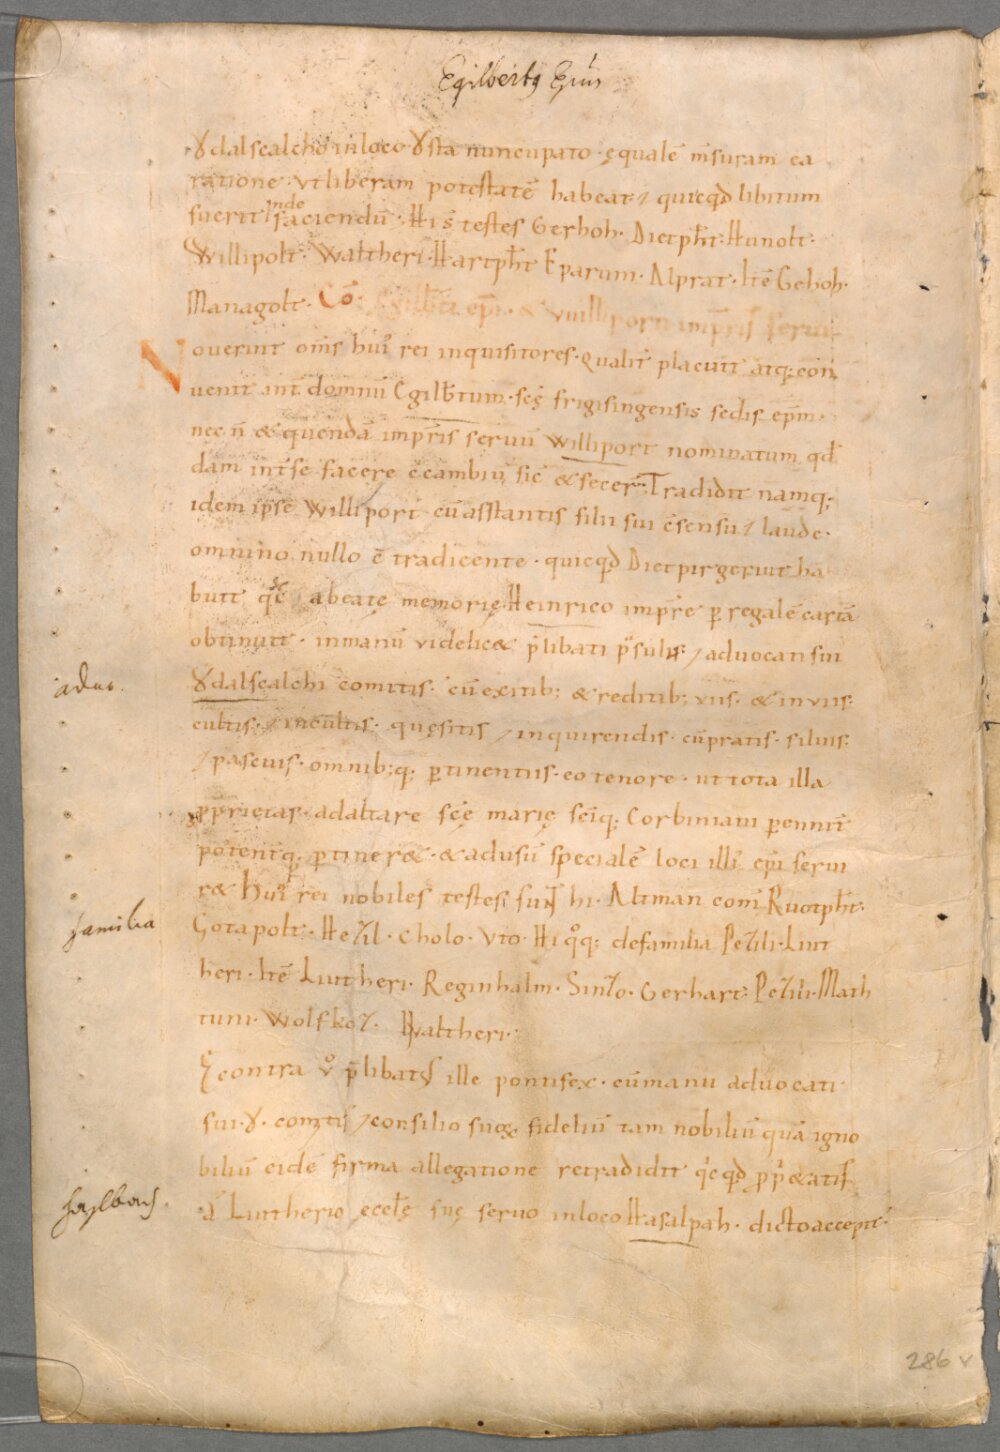 Egilbertꝯ Epūs
Ȣdalscalcho inloco Ȣsta nuncupato · ęqualē m̄suram ea
ratione · vt liberam potestatē habeat / quicqd̄ libitum
fuerit inde faciendū · Hi s̄ testes Gerhoh · Dietpħt · Hunolt ·
Willipolt · Waltheri · Hartpħt Eparum · Alprat · Itē Gehoh ·
Managolt · Cō · Egilb̄ti epī · & vuilliporti impr̄is serui
Nouerint om̄s hui᾽ rei inquisitores · qualit̄ placuit atq; con
uenit int̄ domnū Egilb̄tum · scę frigisingensis sedis ep̄m ·
nec n̄ & quendā impr̄is seruū Williport nominatum qd̄
dam int̄ se facere c̄cambiū sic̄ & fecer̄ Tradidit namq;
idem ip̄se Williport cū asstantis filii sui c̄sensu / laude ·
omnino nullo c̄tradicente · quicqd̄ Dietpirgeriut ha
buit qc̄ a beatę memorię Heinrico impr̄e p̄ regalē cartā
obtinuit · inmanū videlic& p̄libati p̄sulis / aduocati sui
aduo.
Ȣdalscalchi comitis · cū exitib; & reditib; viis · & inviis ·
cultis · / incultis · quęsitis / inquirendis · cū pratis · siluis ·
/ pascuis · omnib; q; p̄tinentiis · eo tenore · ut tota illa
p̄prietas · ad altare scę marię scīq; Corbiniani p̄enniť
potent̄q; p̄tiner& · & adusū specialē loci illi᾽ epī serui
r& Hui᾽ rei nobiles testes sunt hi · Altman com̄ Ruotpħt ·
familia
Gotapolt · Hezil · Cholo · Vto · Hi qͦq; de familia Pezili · Liut
heri · Itē Liutheri · Reginhalm · Sinzo · Gerhart · Pezili · Math
tuni · Wolfkoz · Waltheri ·
Ę contra vͦ p̄libatꝯ ille pontifex · cū manu aduocati
sui · Ȣ · comitis / consilio suoꝝ fideliū tam nobiliū quā igno
biliū eidē firma allegatione retradidit qicqd̄ p̄p̄&atis
haslbach.
a᾽ Liutherio ęccłę suę seruo inloco Hasalpah · dicto accepit ·
286 v